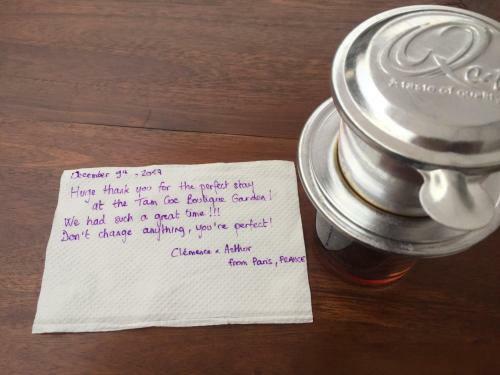 December 9th, 2017
Huge thank you for the perfect stay
at the Tam Coc Boutique Garden!
We had such a great time!!!
Don't change anything, you're perfect!
Clémence & Arthur
from Paris, FRANCE
A taste of